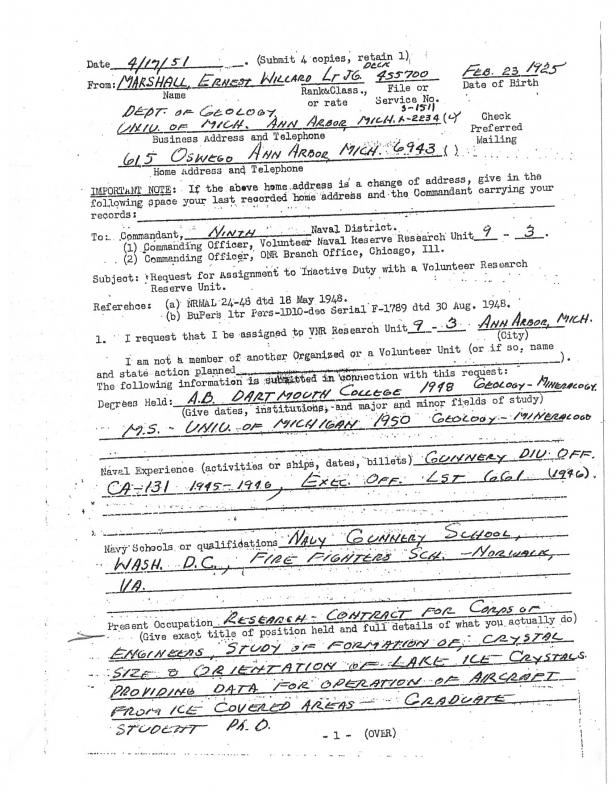 Date 4/17/51. (Submit 4 copies, retain 1)
From: MARSHALL, ERNEST WILLARD LT JG. DECK 455700 FEB. 23 1925
Name Rank&Class., or rate File or Service No. Date of Birth
DEPT. OF GEOLOGY S-1511
UNIV. OF MICH. ANN ARBOR, MICH. A-2234 (✓) Check
Business Address and Telephone Preferred
615 OSWEGO ANN ARBOR MICH. 6943 ( ) Mailing
Home Address and Telephone
IMPORTANT NOTE: If the above home address is a change of address, give in the
following space your last recorded home address and the Commandant carrying your
records:
To: Commandant, NINTH Naval District.
(1) Commanding Officer, Volunteer Naval Reserve Research Unit 9 - 3.
(2) Commanding Officer, ONR Branch Office, Chicago, Ill.
Subject: Request for Assignment to Inactive Duty with a Volunteer Research
Reserve Unit.
Reference: (a) NRMAL 24-48 dtd 18 May 1948.
(b) BuPers ltr Pers-1D10-deo Serial F-1789 dtd 30 Aug. 1948.
1. I request that I be assigned to VNR Research Unit 9 - 3 ANN ARBOR, MICH.
(City)
I am not a member of another Organized or a Volunteer Unit (or if so, name
and state action planned ).
The following information is submitted in connection with this request:
Degrees Held: A.B. DARTMOUTH COLLEGE 1948 GEOLOGY-MINERALOGY.
(Give dates, institutions, and major and minor fields of study)
M.S. - UNIV. OF MICHIGAN 1950 GEOLOGY-MINERALOGY
Naval Experience (activities or ships, dates, billets) GUNNERY DIV OFF.
CA-131 1945-1946, EXEC. OFF. LST 661 (1946).
Navy Schools or qualifications NAVY GUNNERY SCHOOL,
WASH. D.C., FIRE FIGHTERS SCH. - NORWALK,
VA.
Present Occupation RESEARCH - CONTRACT FOR CORPS OF
(Give exact title of position held and full details of what you actually do)
ENGINEERS, STUDY OF FORMATION OF, CRYSTAL
SIZE & ORIENTATION OF LAKE ICE CRYSTALS
PROVIDING DATA FOR OPERATION OF AIRCRAFT
FROM ICE COVERED AREAS - GRADUATE
STUDENT Ph.D.
- 1 - (OVER)